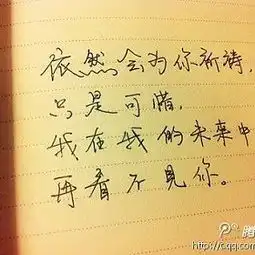 依然会为你祈祷，
只是可惜，
我在我的未来中
再看不見你。
腾
http://c.qq.com/